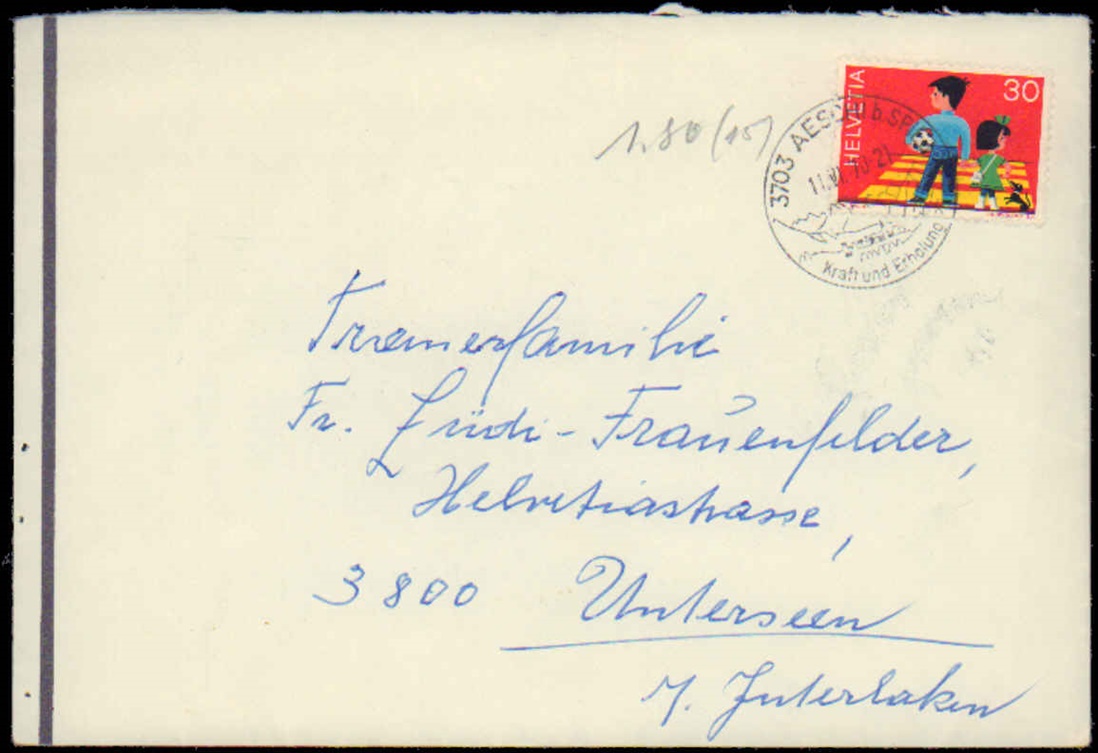 HELVETIA
30
1.80 (15)
3703 AESCHI b. SP
11.VI.70-21
Kraft und Erholung
Trauerfamilie
Fr. Lüdi - Frauenfelder,
Helvetiastrasse,
3800 Unterseen
Interlaken